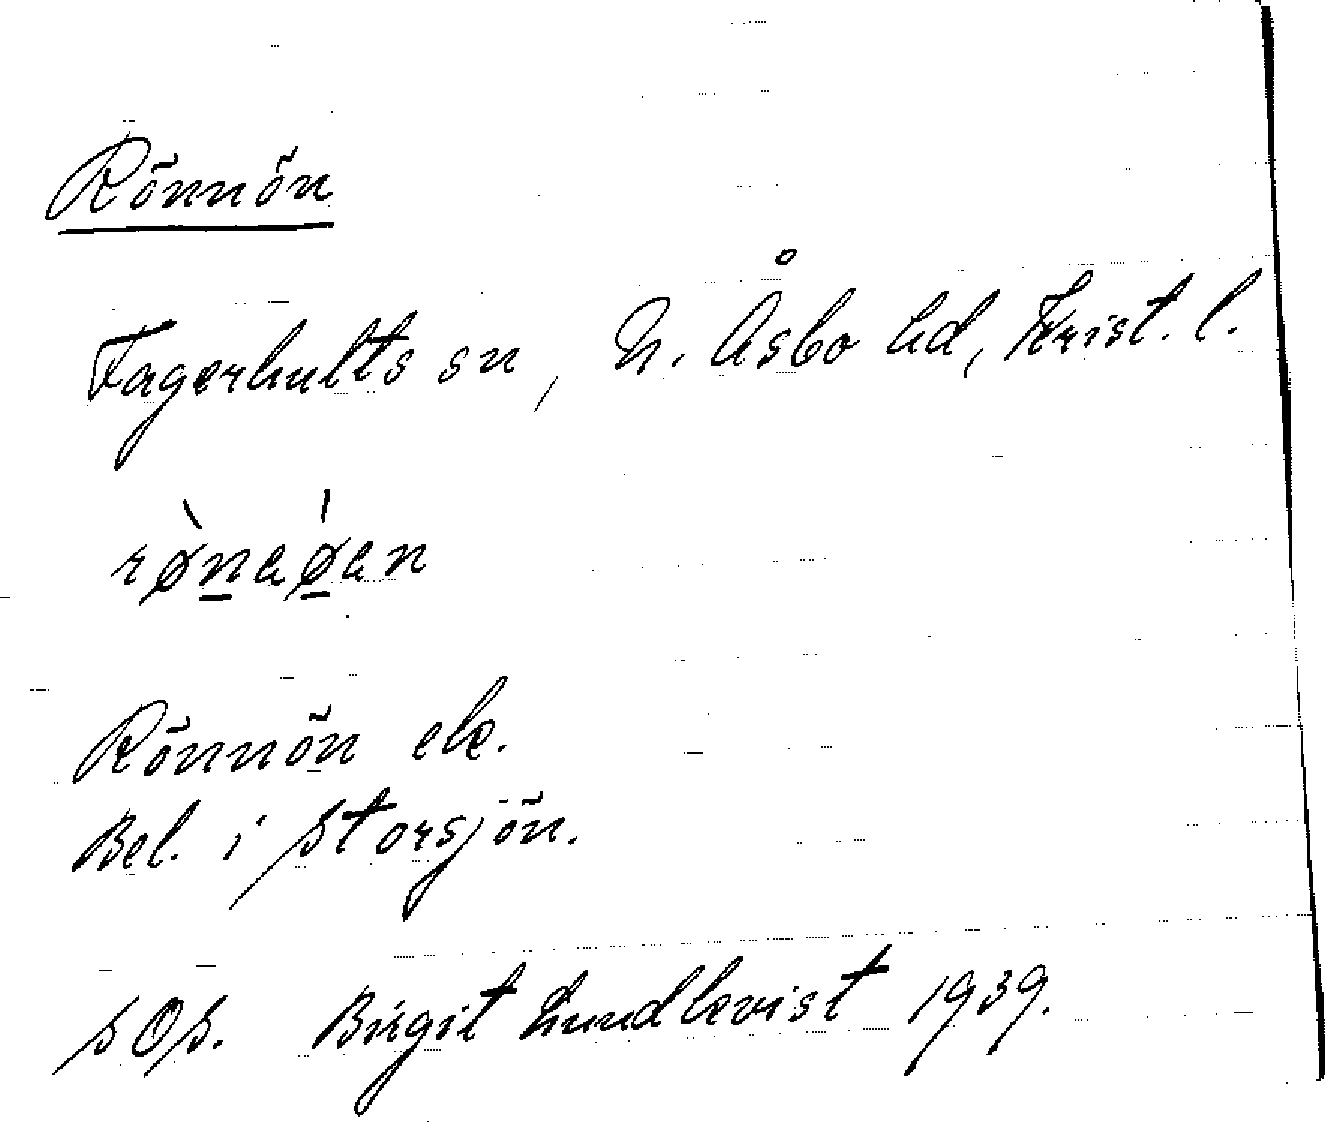 Rönnön
Fagerhults sn, N. Åsbo hd, Krist. l.
rø̀naǿan
Rönnön ek.
Bel. i Storsjön.
SOS. Birgit Lundkvist 1939.